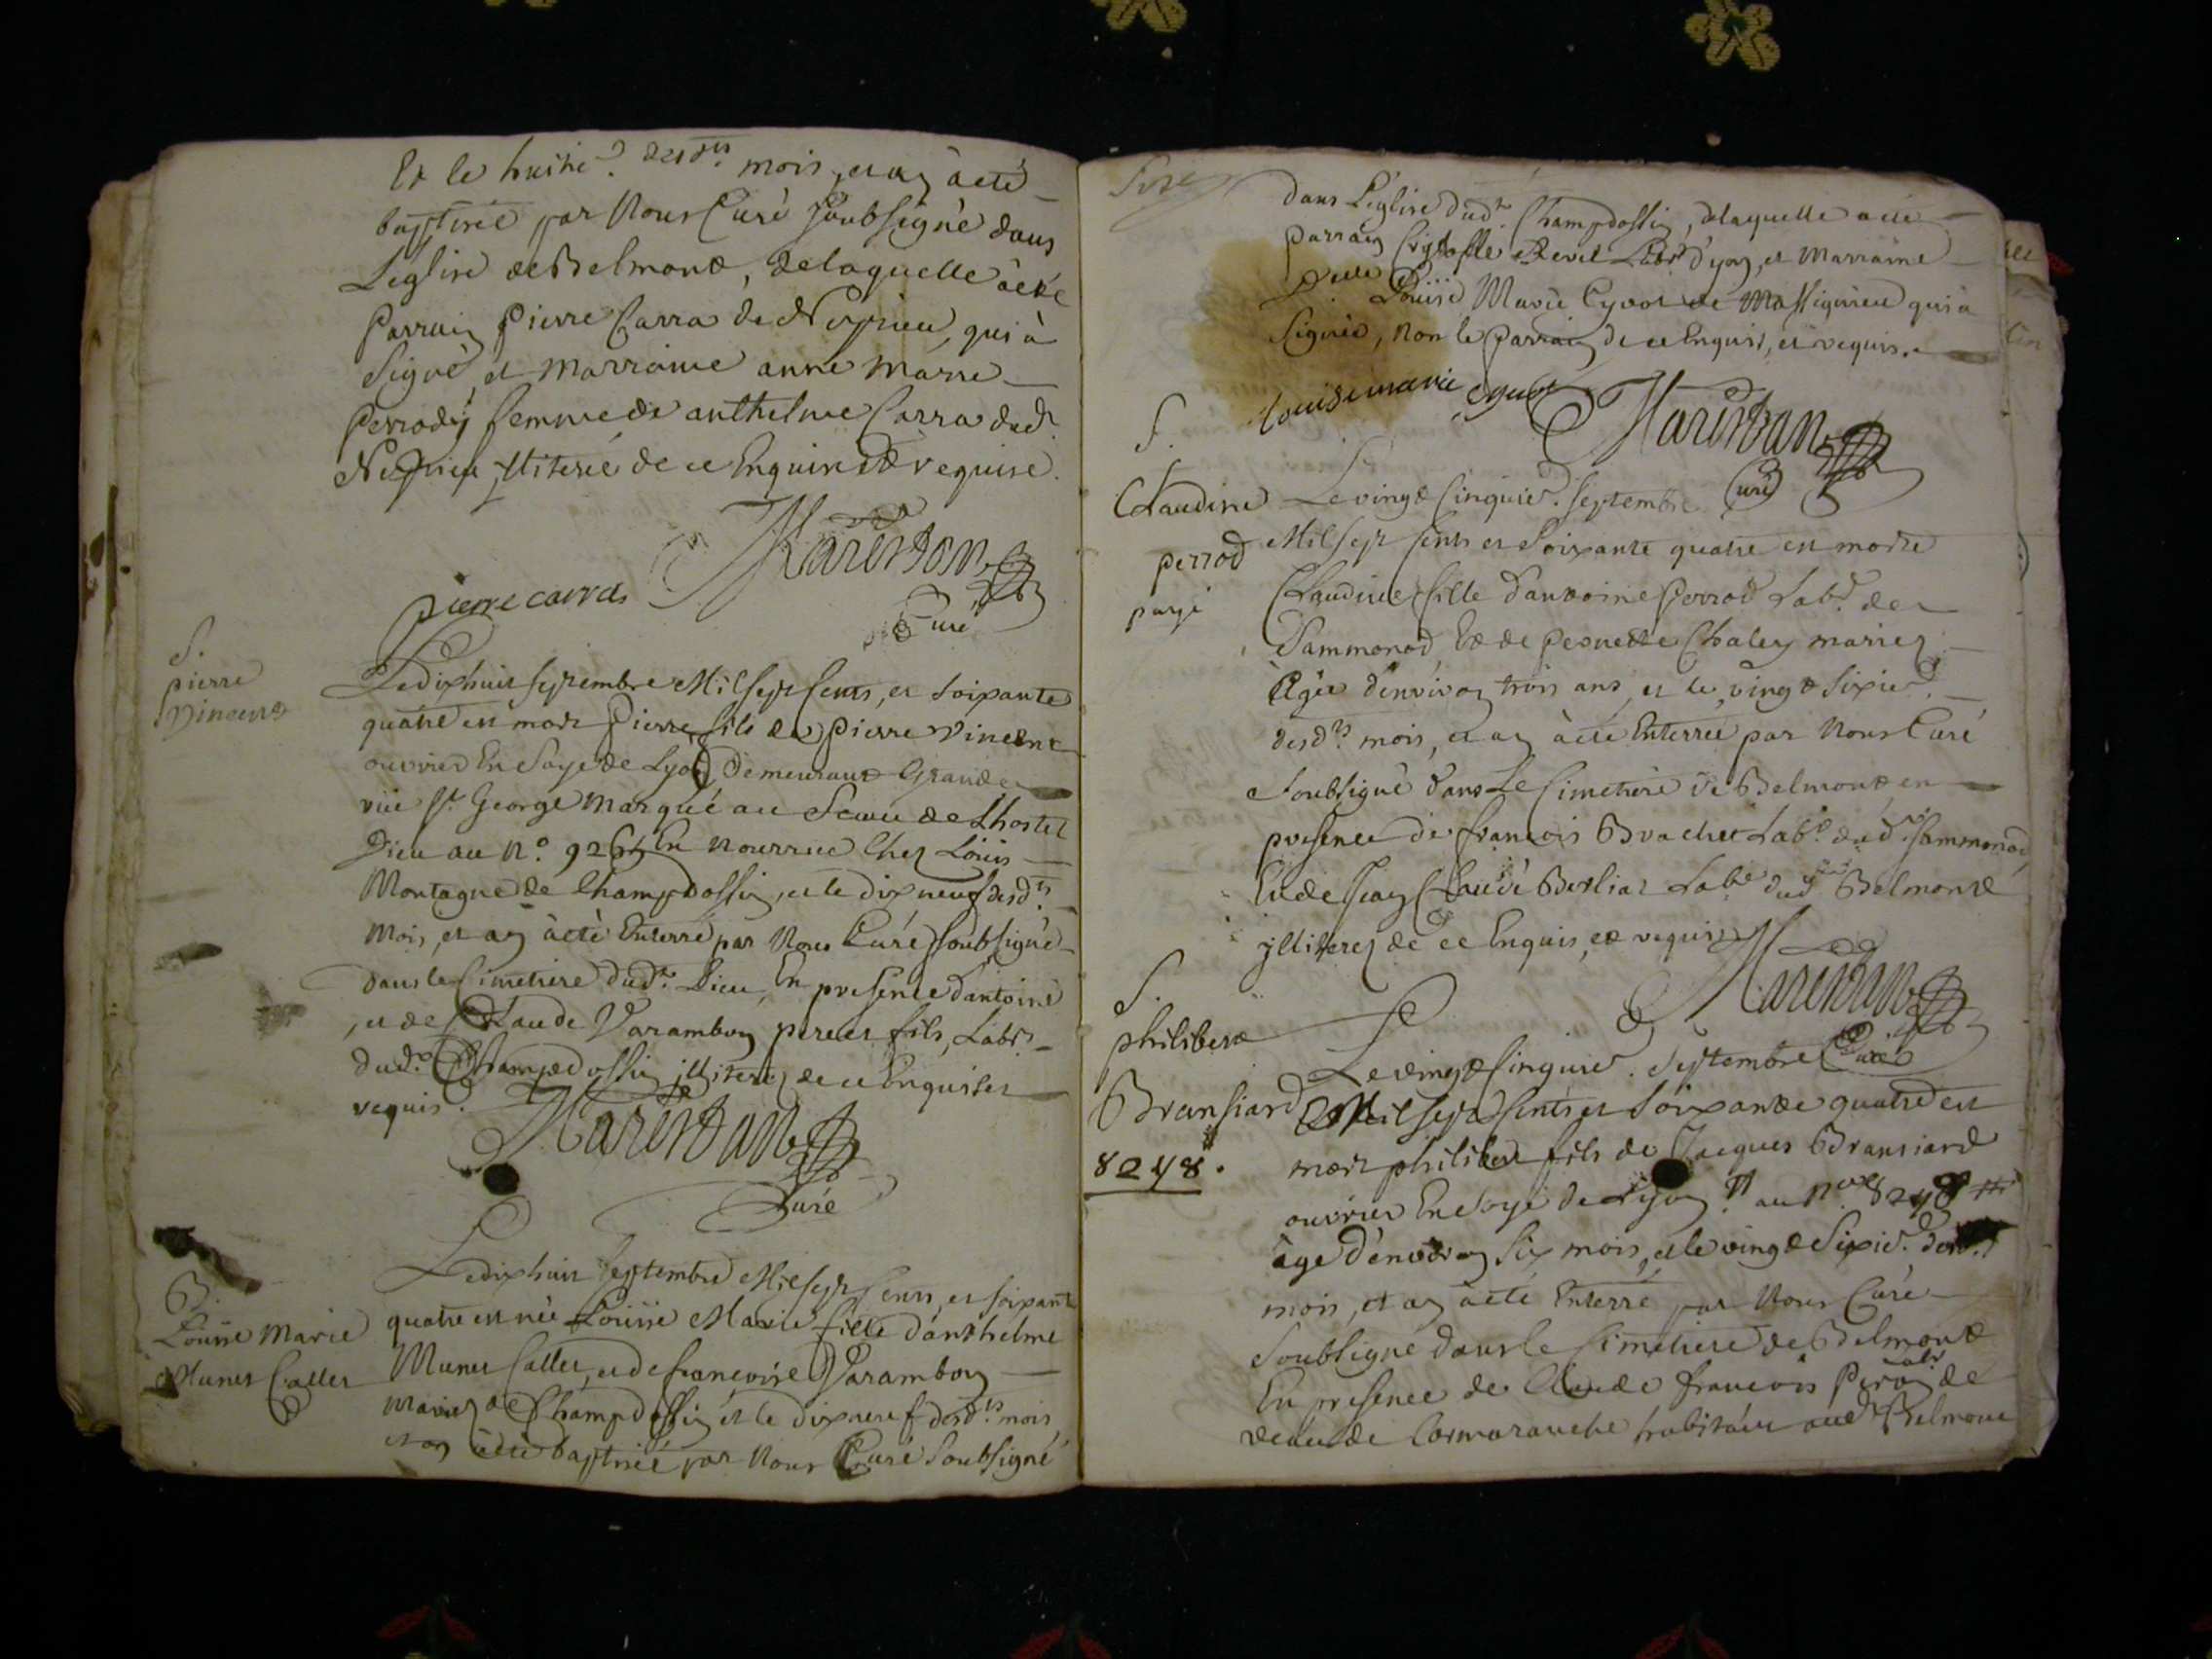 Et le huitie. desdts. mois, et an à eté
baptisée par Nous Curé soubsigné dans
L'eglise de Belmont, de laquelle à eté
Parrain Pierre Carra de Neyrieu, qui à
signé, et marraine anne marie
Perrody femme de anthelme Carra dud.
Neyrieu illiterée de ce Enquise et requise.
pierre carra
Curé
S.
pierre
Vincent
Le dix huit septembre Mil sept cents, et soixante
quatre est mort Pierre fils de pierre Vincent
ouvrier En soye de Lyon, Demeurant Grande
rüe St. George marqué au Sceau de Lhostel
Dieu au n°. 9264 En nourrice Chez Loüis
Montagne de Champdossin, et le dix neuf desdts.
mois, et an à eté Enterré par Nous Curé soubsigné
dans le Cimetiere dudt. Lieu, En presence d'antoine
, et de Claude Varambon pere et fils, Labrs.
dudt. Champdossin illiterez de ce Enquis et
requis.
Curé
B.
Loüise Marie
Munet Callet
Le dix huit septembre Mil sept cents, et soixante
quatre est née Loüise Marie fille d'anthelme
Munet Callet, et de francoise Varambon
mariez de Champdossin et le dix neuf desdts. mois
et an à eté baptisée par Nous Curé soubsigné
dans L'eglise dudt. Champdossin, de laquelle a eté
parrain Labr. d'yon, et marraine
Delle Loüise Marie Cyvot de Massignieu qui a
signée, non le parrain de ce Enquis, et requis.
louise marie cyvot
Curé
S.
Claudine
perrod
payé
Le vingt Cinquie. septembre
Mil sept cents et soixante quatre est morte
Claudine fille d'antoine Perrod Labr. de
Sammonod, Et de pernette Chaley mariez
Agée d'environ trois ans, et le vingt sixie.
desdts. mois, et an à eté Enterrée par Nous Curé
soubsigné dans Le Cimetiere de Belmont en
presence de francois Brachet Labr. dudt. Sammonod,
Et de Jean Claude Berliat Labr. dudt. Belmont
illiterez de ce Enquis, et requis.
Curé
S.
philibert
Bransiard
8248.
Le vingt Cinquie. septembre
Mil sept Cents et soixante quatre est
mort philibert fils de Jacques Bransiard
ouvrier En soye de Lyon au no. 8248
âge d'environ six mois, et le vingt sixie. desdts.
mois, et an à eté Enterré par Nous Curé
soubsigné dans le Cimetiere de Belmont
En presence de Claude francois de
Cormaranche habitant audt. Belmont